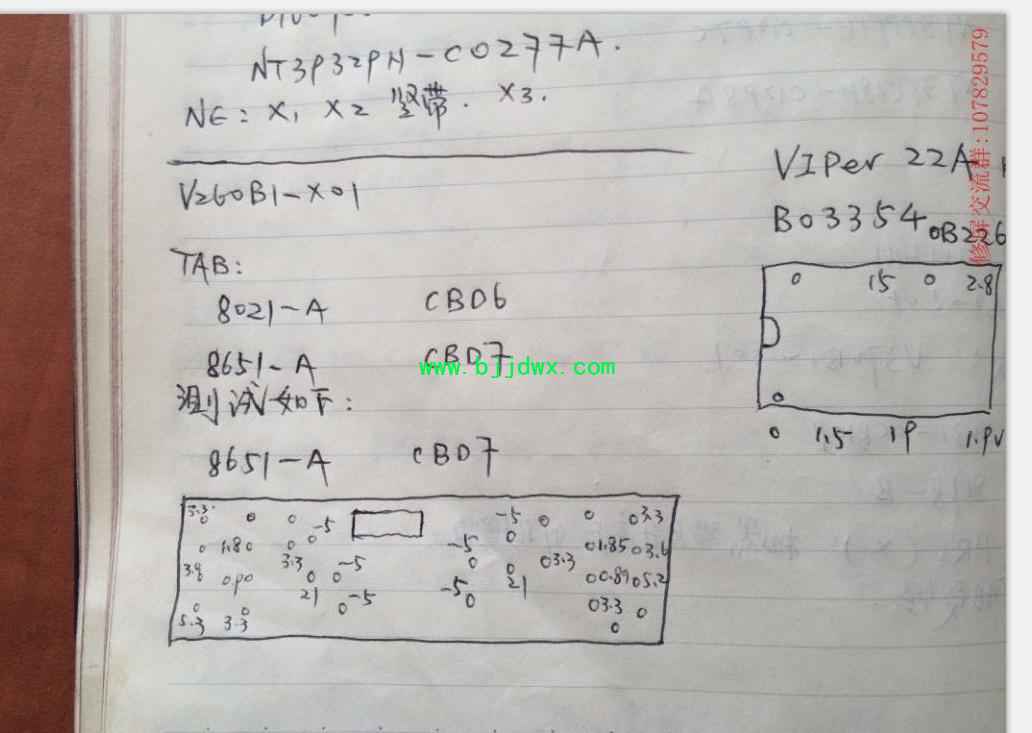 NT3P32PH-C0277A.
NE: X1 X2 竖带. X3.
V260B1-X01
TAB:
8021-A CBD6
8651-A CBD7
测试如下:
8651-A CBD7
3.3 -5 -5 03.3
1.80 -5 01.85 03.6
3.8 3.3 -5 03.3 00.89 05.2
21 -5 -5 21 03.3
5.3 3.3
VIPer 22A
B03354 OB226
0 15 0 2.8
0 1.5 19 1.9V
www.bjjdwx.com
修屏交流群:107829579